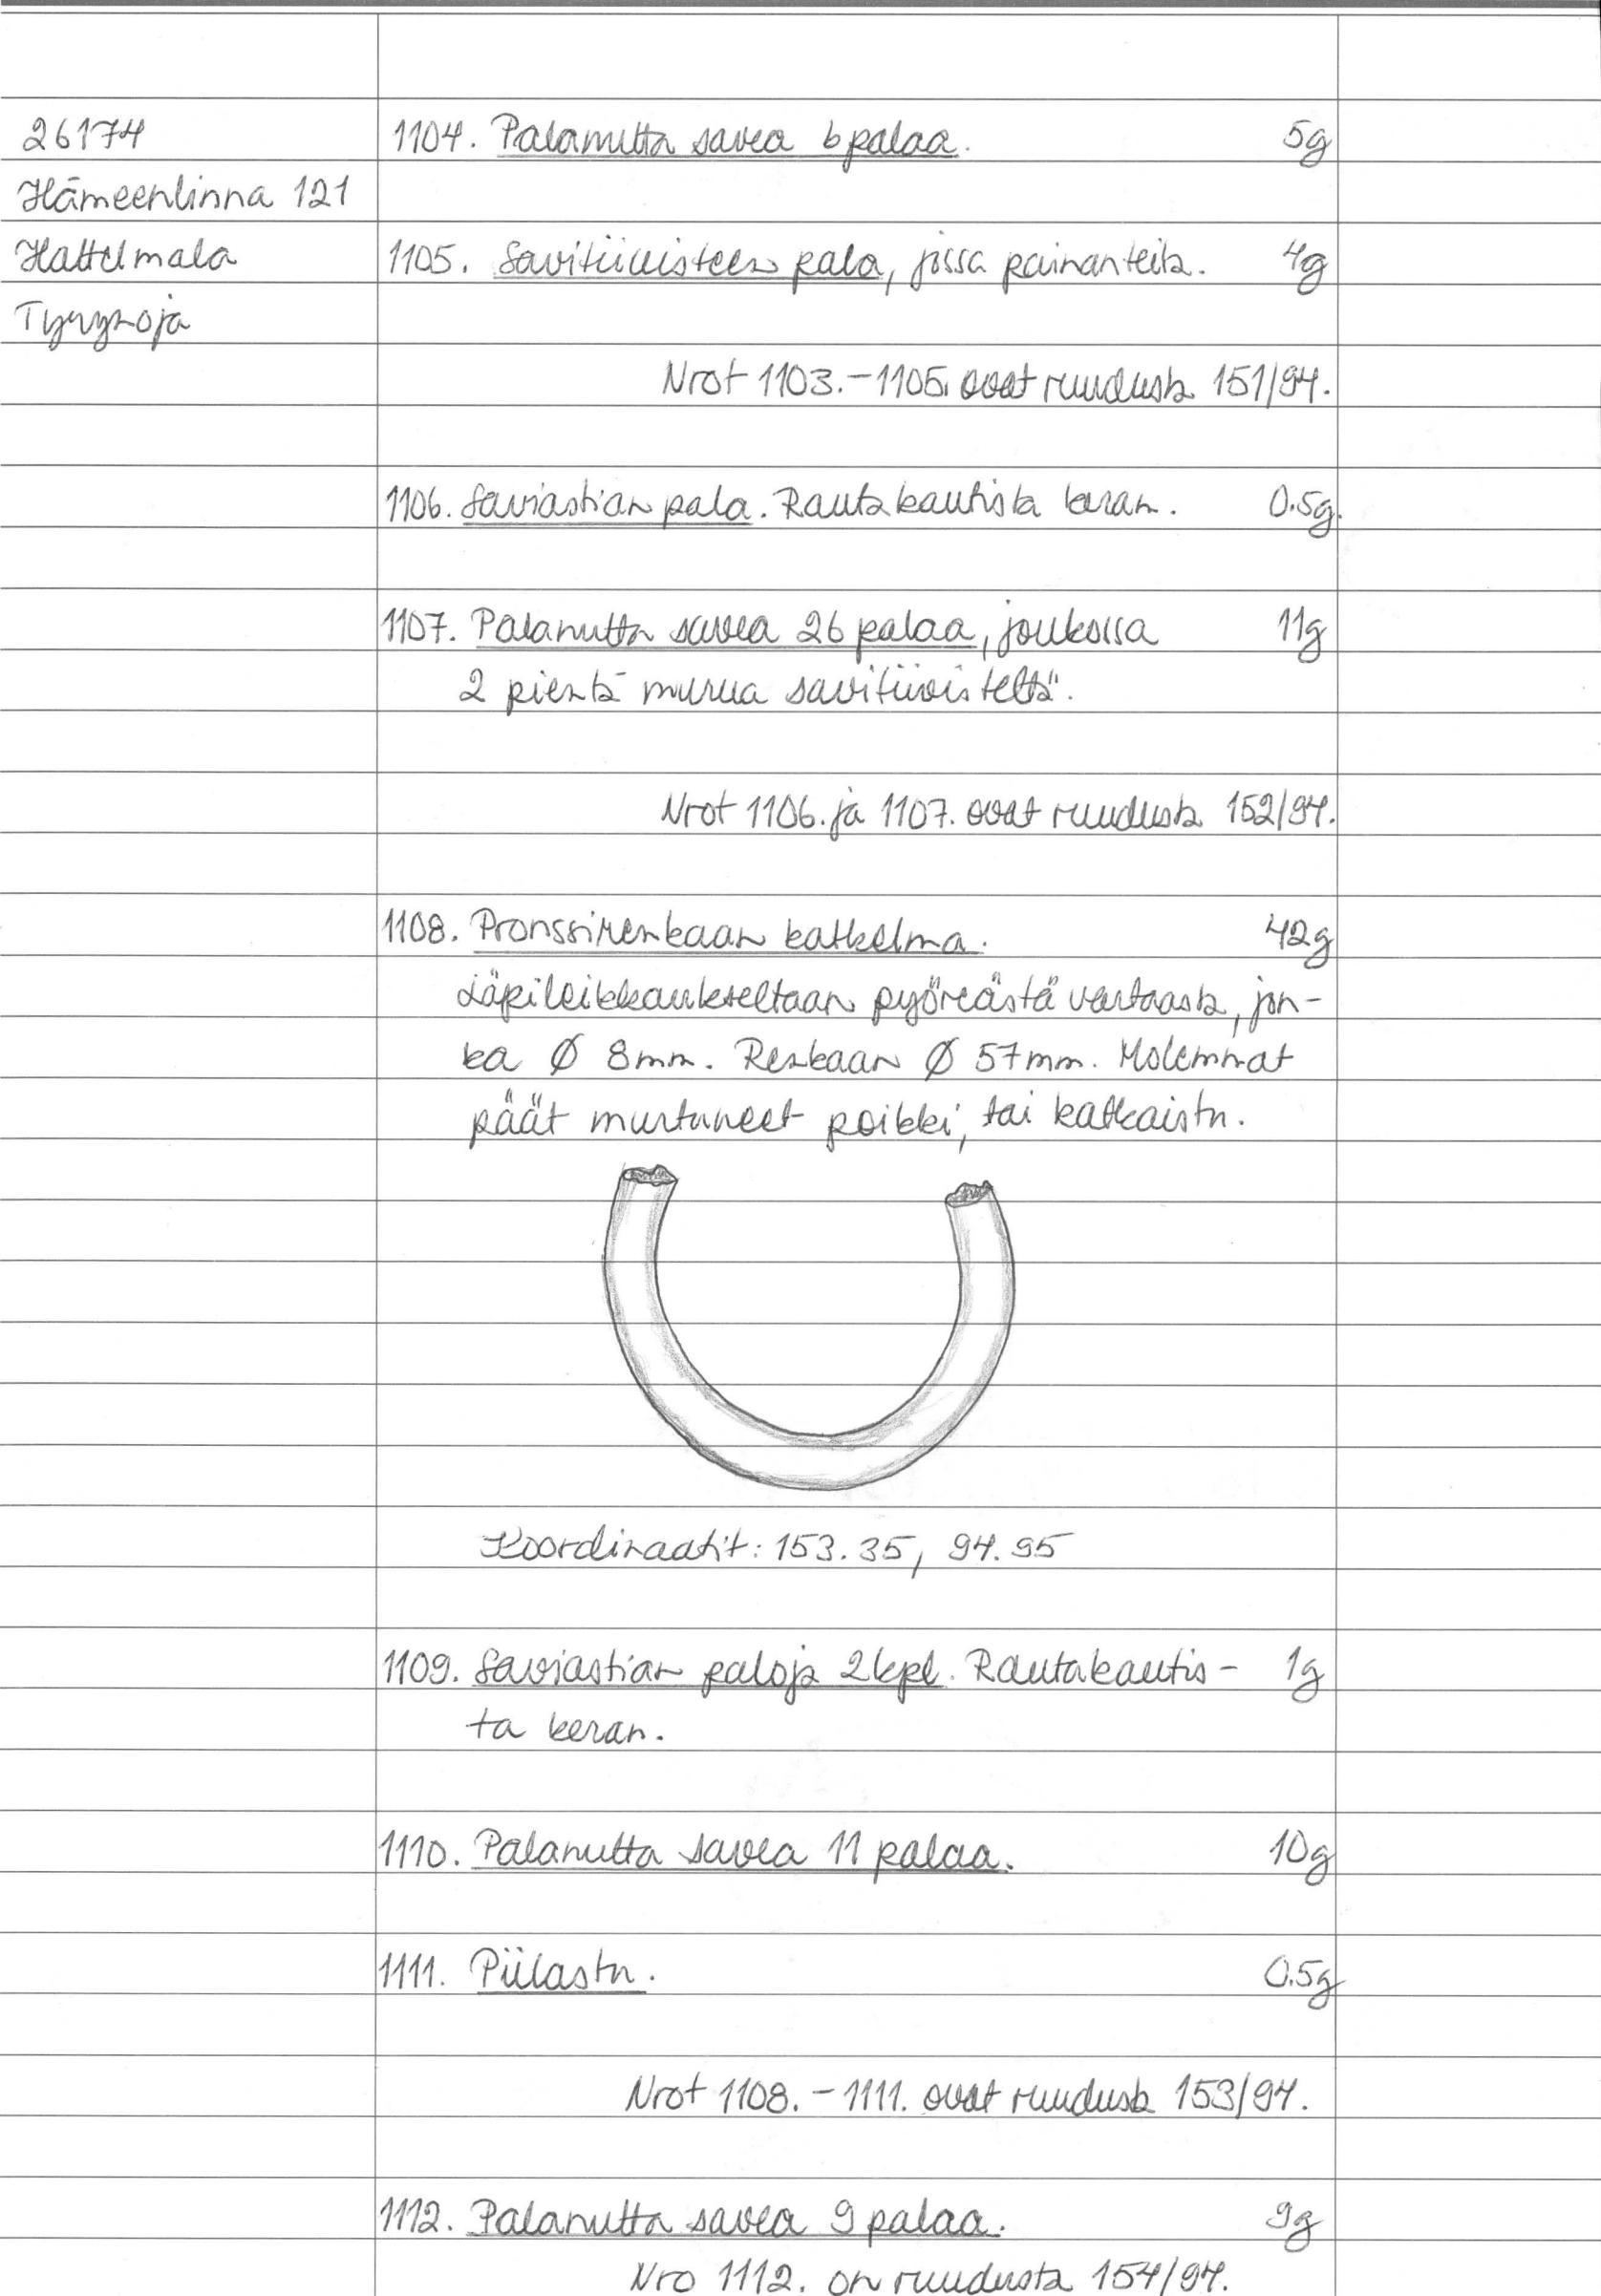 26174
Hämeenlinna 121
Hattelmala
Tyrynoja
1104. Palanutta savea 6 palaa. 5g
1105. Savitiivisteen pala, jossa painanteita. 4g
Nrot 1103.-1105. ovat ruudusta 151/94.
1106. Saviastian pala. Rautakautista keram. 0.5g.
1107. Palanutta savea 26 palaa, joukossa 11g
2 pientä murua savitiivistettä.
Nrot 1106. ja 1107. ovat ruudusta 152/94.
1108. Pronssirenkaan katkelma. 42g
Läpileikkaukseltaan pyöreästä vartaasta, jon-
ka Ø 8mm. Renkaan Ø 57mm. Molemmat
päät murtuneet poikki, tai katkaistu.
Koordinaatit: 153.35, 94.95
1109. Saviastian paloja 2kpl. Rautakautis- 1g
ta keram.
1110. Palanutta savea 11 palaa. 10g
1111. Piilastu. 0.5g
Nrot 1108.-1111. ovat ruudusta 153/94.
1112. Palanutta savea 9 palaa. 9g
Nro 1112. on ruudusta 154/94.